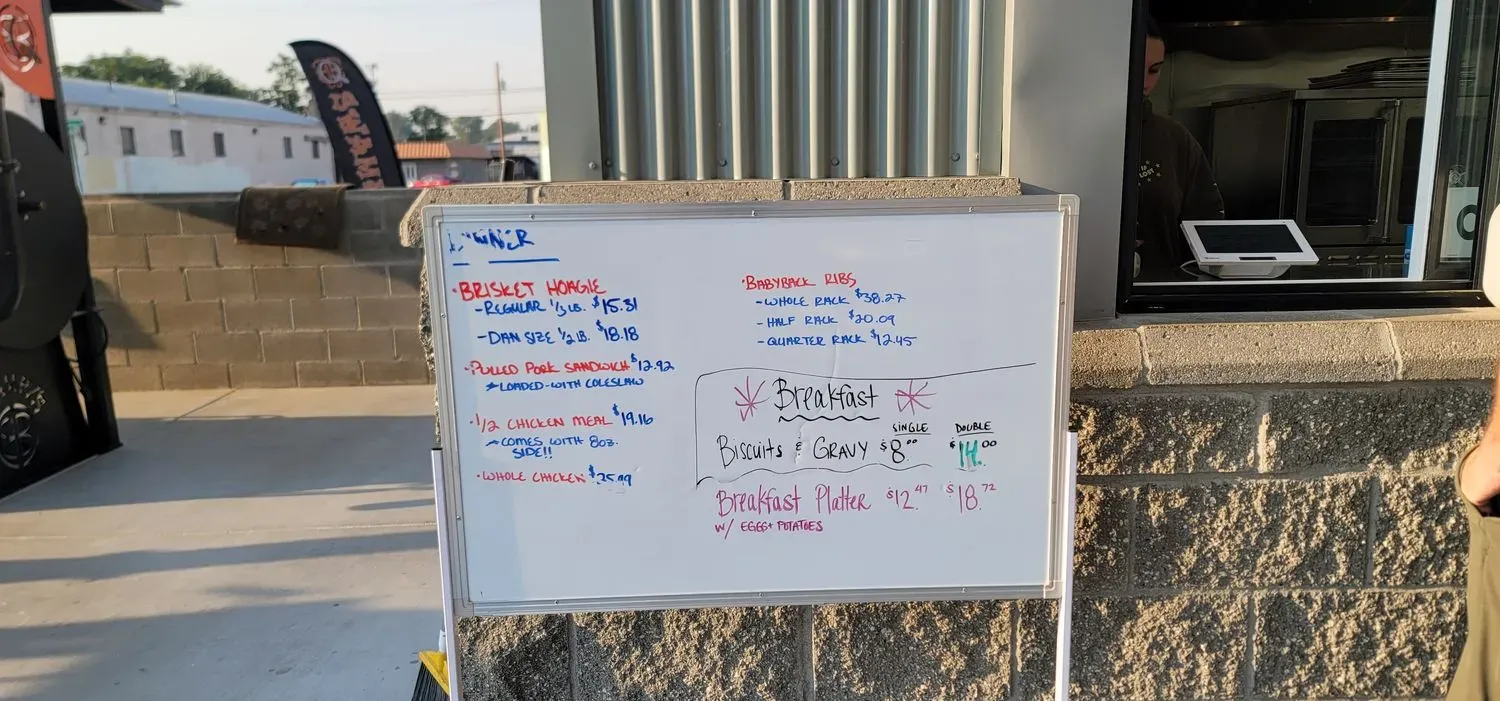 BRISKET HOAGIE
- REGULAR 1/3 LB. $15.31
- DAN SIZE 1/2 LB. $18.18
· PULLED PORK SANDWICH $12.92
LOADED WITH COLESLAW
· 1/2 CHICKEN MEAL $19.16
COMES WITH 8oz.
SIDE!!
· WHOLE CHICKEN $25.99
· BABYBACK RIBS
- WHOLE RACK $38.27
- HALF RACK $20.09
- QUARTER RACK $12.45
Breakfast
SINGLE DOUBLE
Biscuits & GRAVY $8.00 $14.00
Breakfast Platter $12.47 $18.72
W/ EGGS + POTATOES
LOST